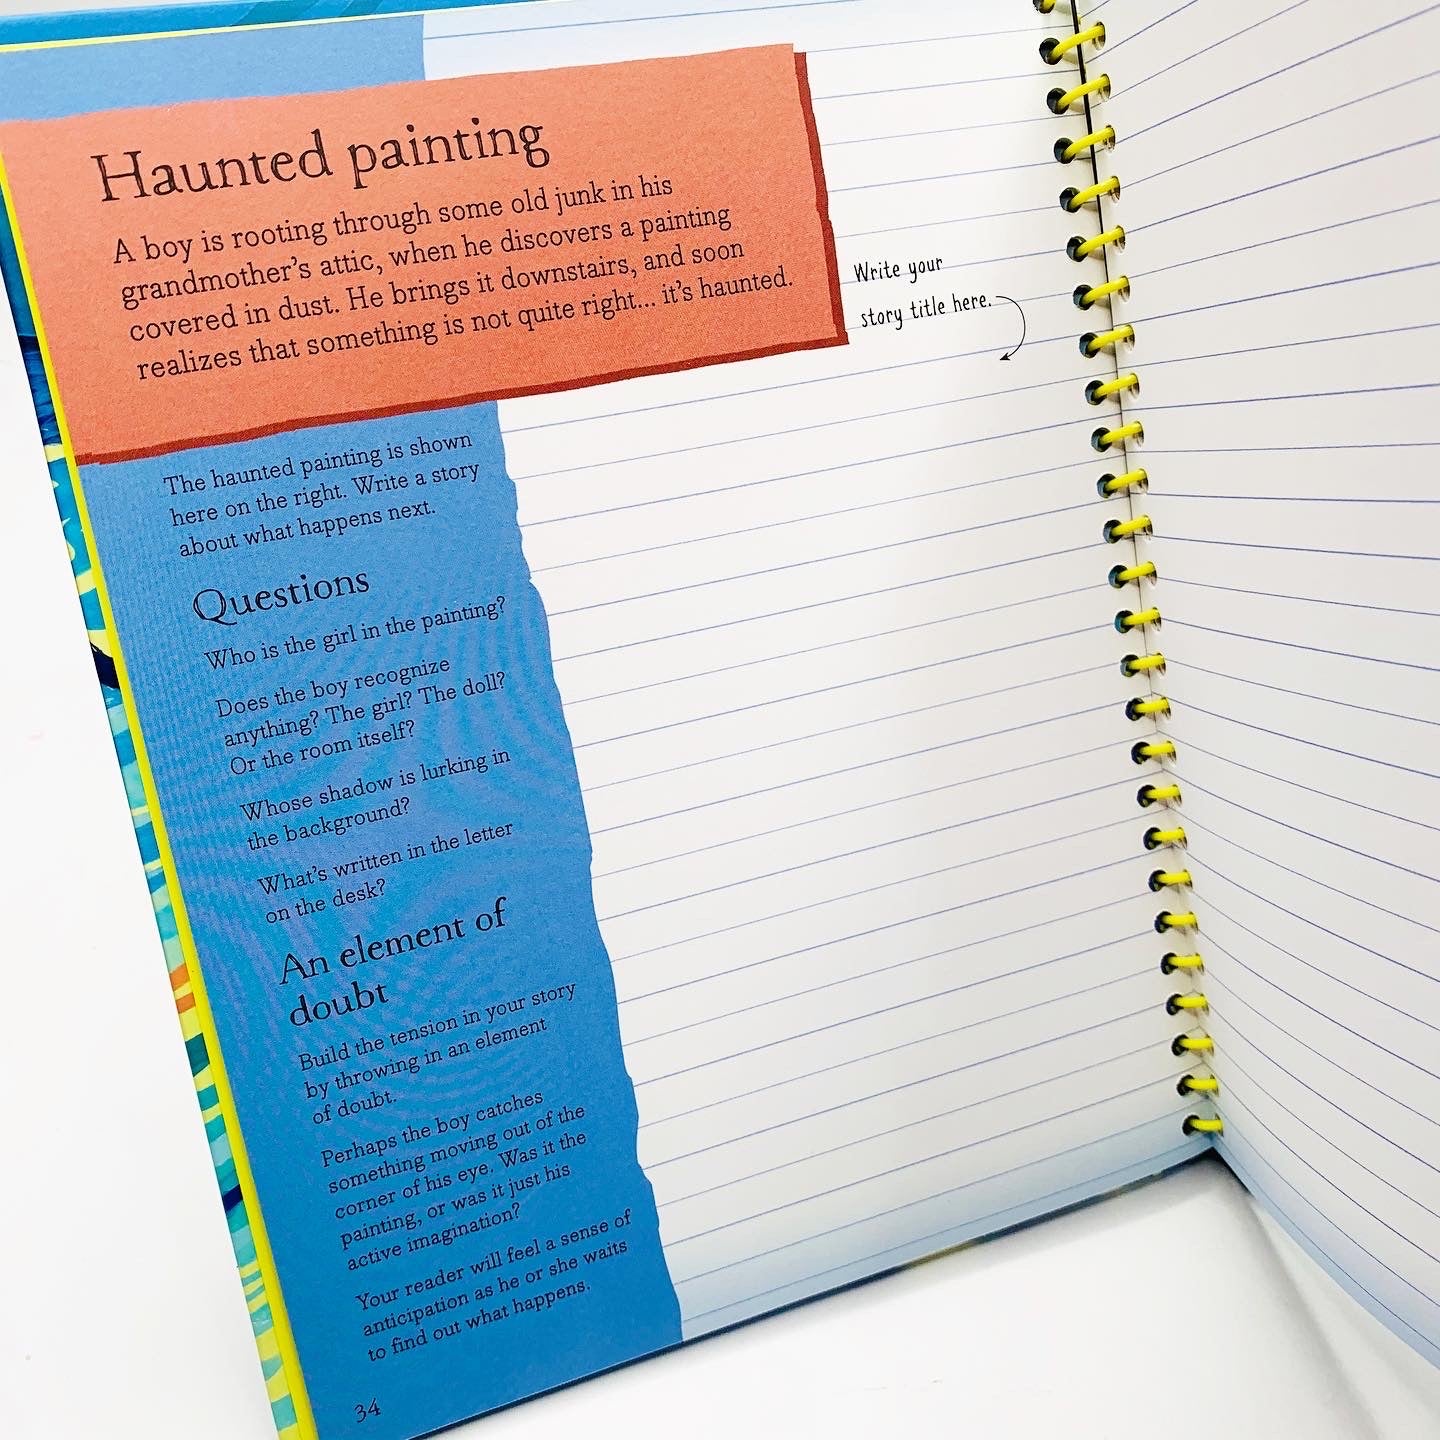 Haunted painting
A boy is rooting through some old junk in his
grandmother's attic, when he discovers a painting
covered in dust. He brings it downstairs, and soon
realizes that something is not quite right... it's haunted.
Write your
story title here.
The haunted painting is shown
here on the right. Write a story
about what happens next.
Questions
Who is the girl in the painting?
Does the boy recognize
anything? The girl? The doll?
Or the room itself?
Whose shadow is lurking in
the background?
What's written in the letter
on the desk?
An element of
doubt
Build the tension in your story
by throwing in an element
of doubt.
Perhaps the boy catches
something moving out of the
corner of his eye. Was it the
painting, or was it just his
active imagination?
Your reader will feel a sense of
anticipation as he or she waits
to find out what happens.
34